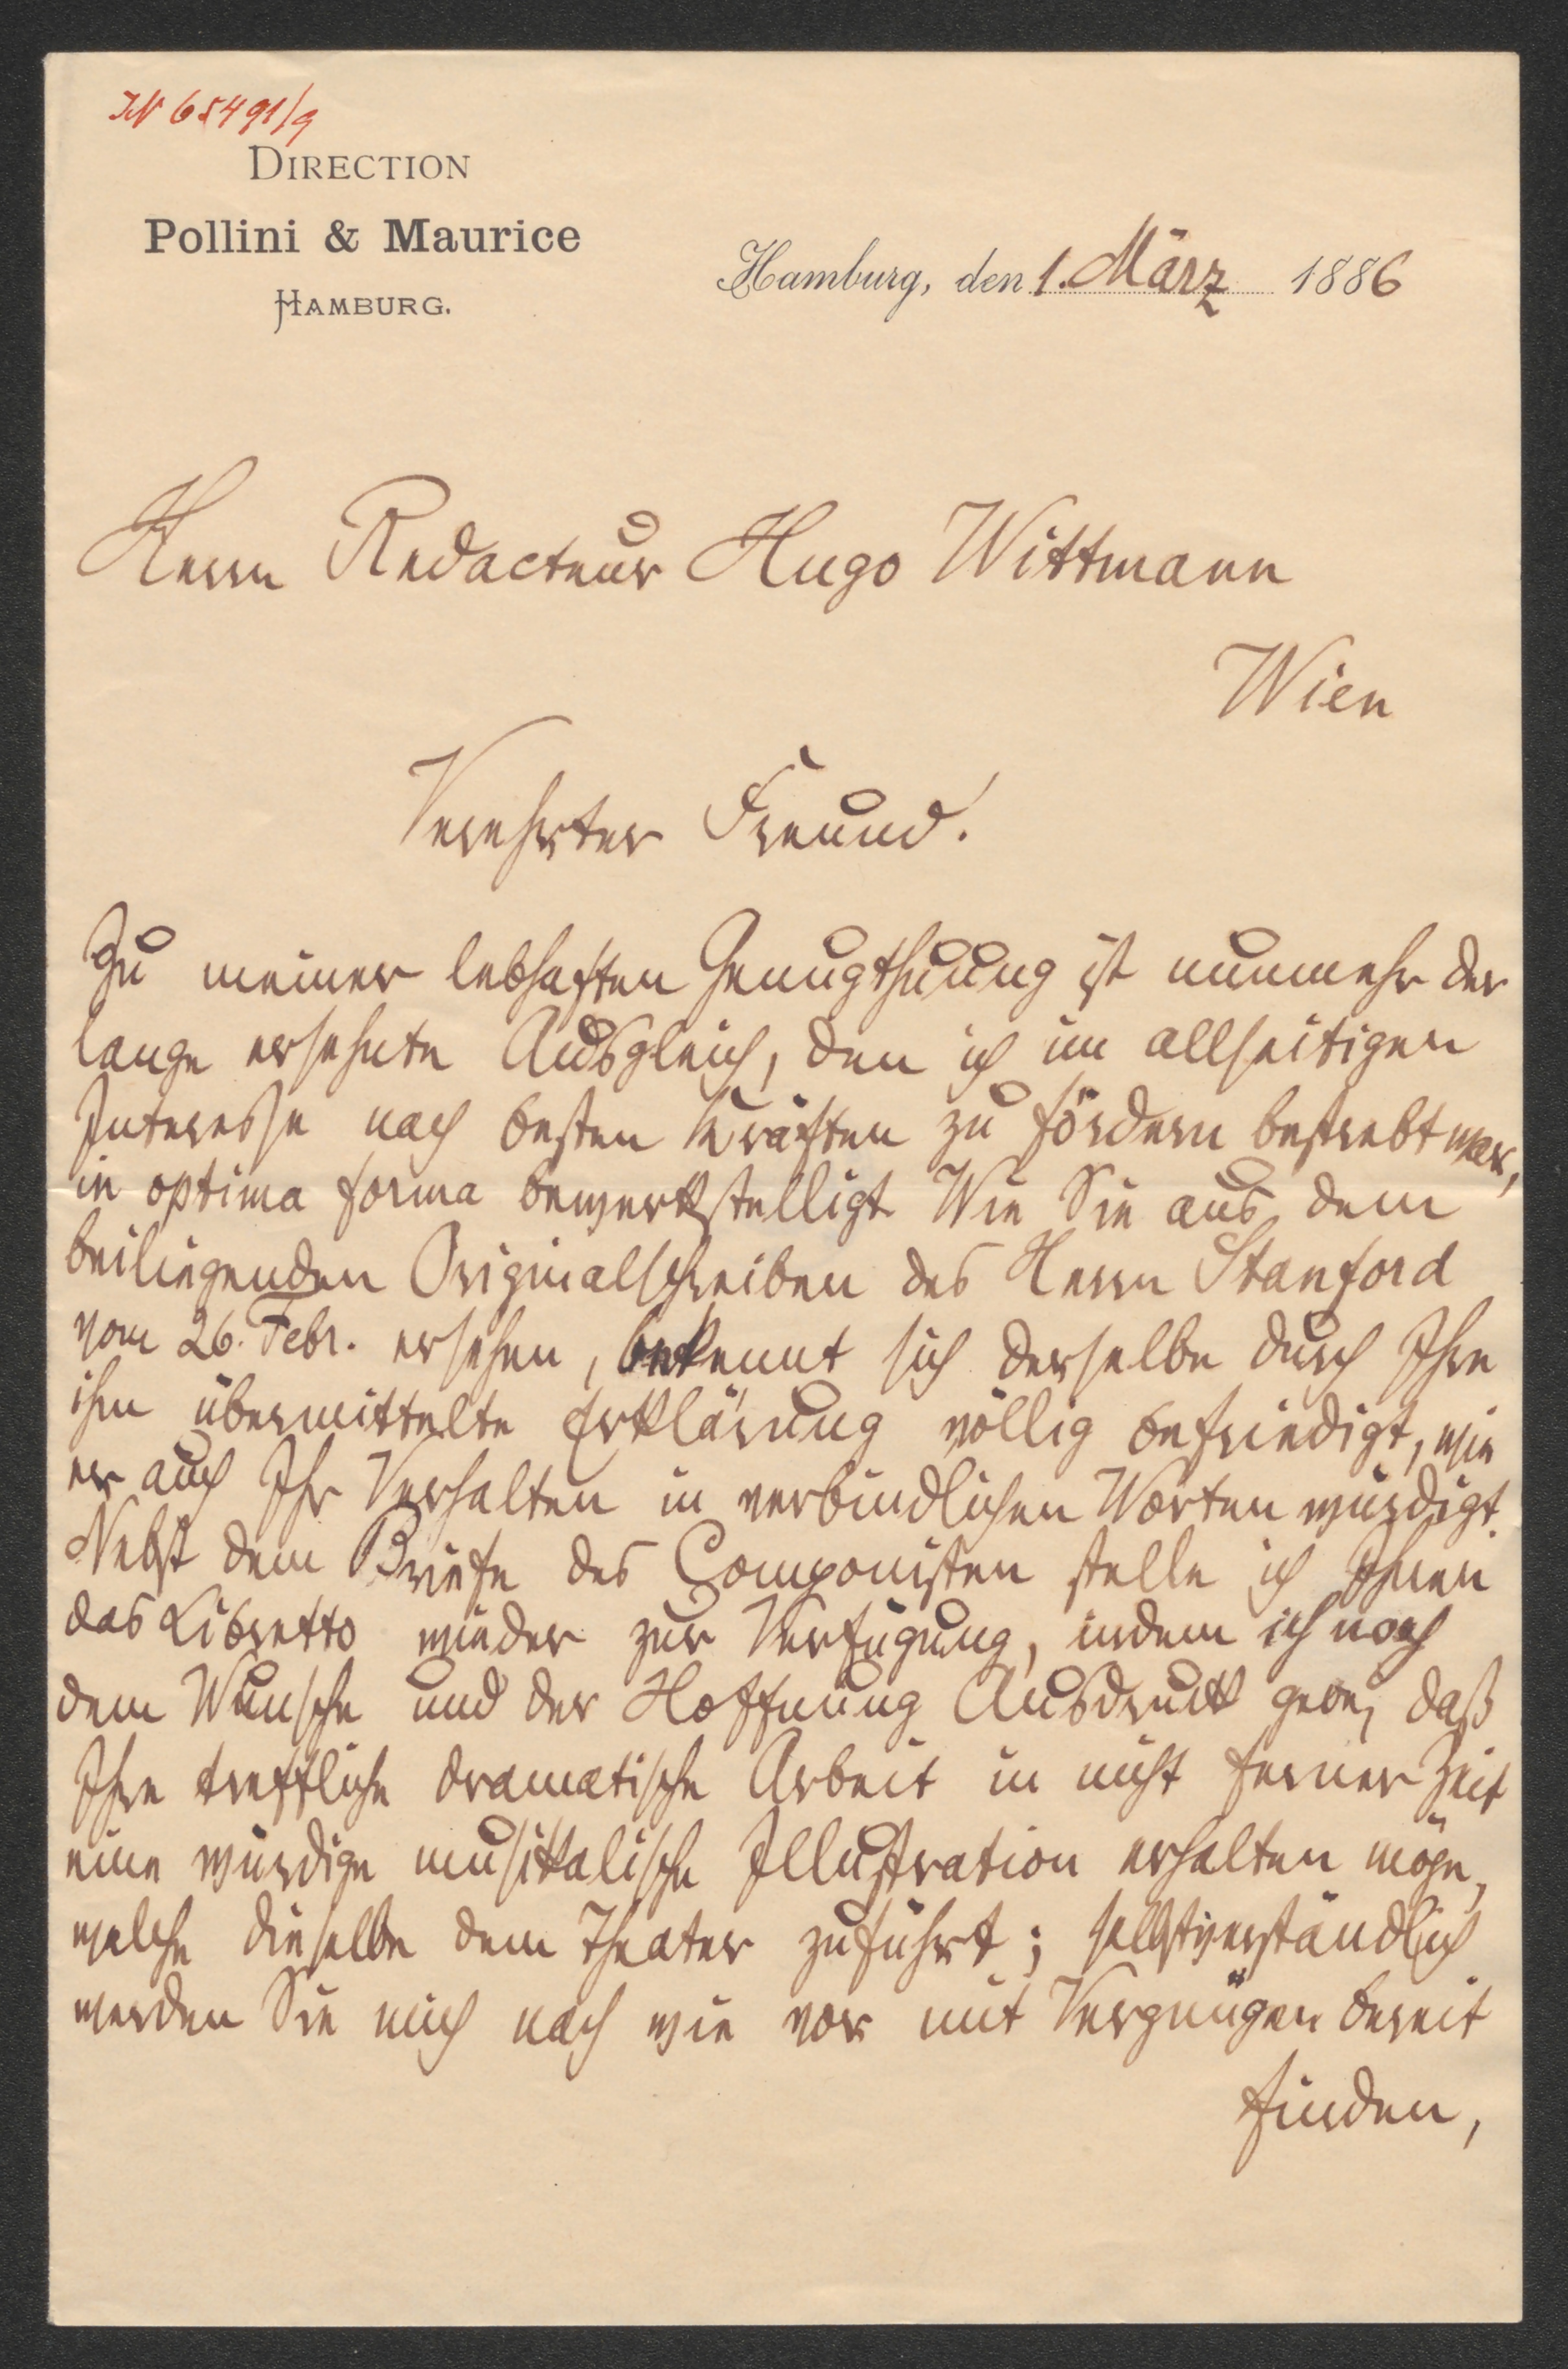 IN 65491/9
DIRECTION
Pollini & Maurice
HAMBURG.
Hamburg, den 1. März 1886
Herrn Redacteur Hugo Wittmann
Wien
Verehrter Freund!
Zu meiner lebhaften Genugthuung ist nunmehr der
lange ersehnte Ausgleich, den ich im allseitigen
Interesse nach besten Kräften zu fördern bestrebt war,
in optima forma bewerkstelligt. Wie Sie aus dem
beiliegenden Originalschreiben des Herrn Stanford
vom 26. Febr. ersehen, bekennt sich derselbe durch Ihre
ihm übermittelte Erklärung völlig befriedigt, wie
er auch Ihr Verhalten in verbindlichen Worten würdigt.
Nebst dem Briefe des Componisten stelle ich Ihnen
das Libretto wieder zur Verfügung, indem ich noch
dem Wunsche und der Hoffnung Ausdruck gebe, daß
Ihre treffliche dramatische Arbeit in nicht ferner Zeit
eine würdige musikalische Illustration erhalten möge,
welche dieselbe dem Theater zuführt; selbstverständlich
werden Sie mich nach wie vor mit Vergnügen bereit
finden,